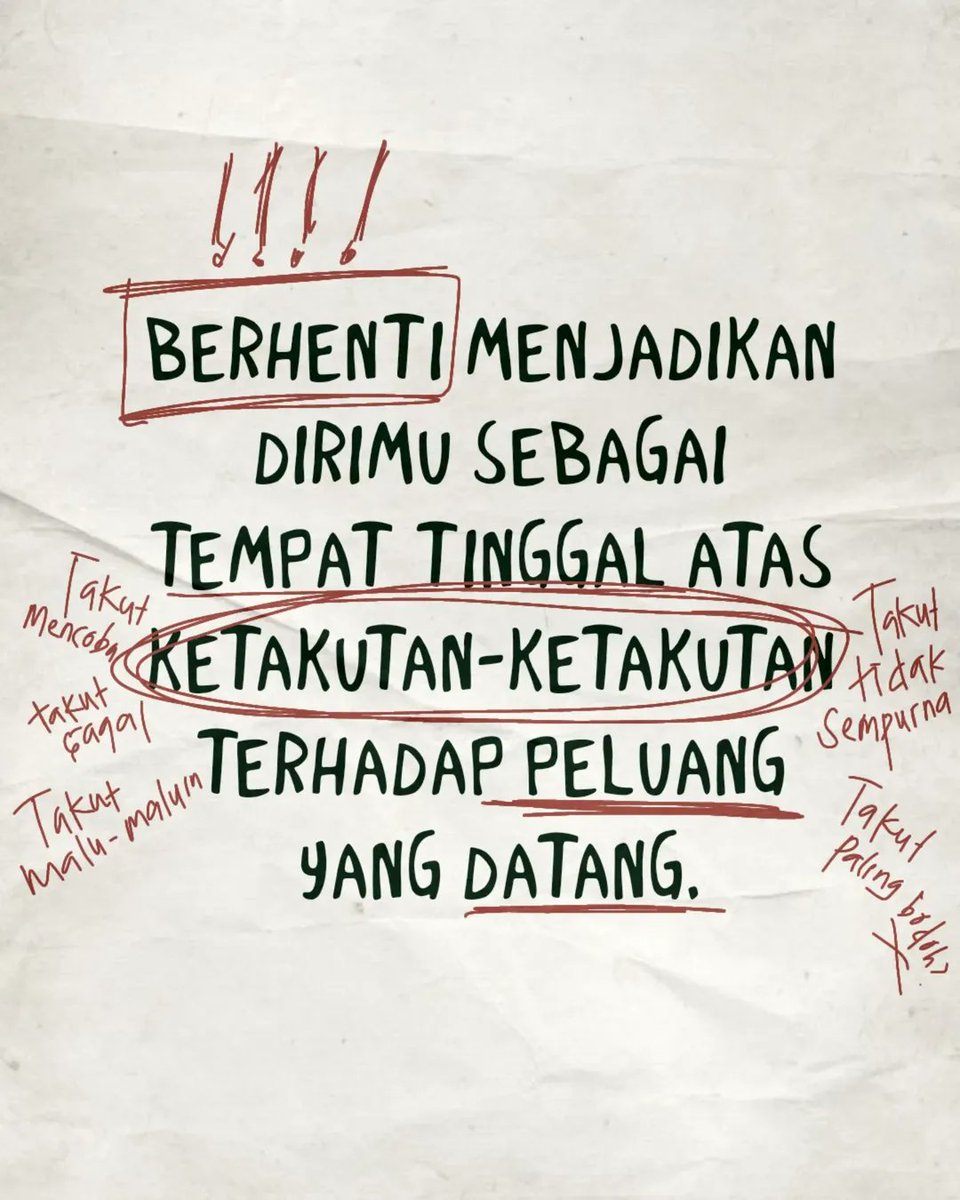 !!!!
BERHENTI MENJADIKAN
DIRIMU SEBAGAI
TEMPAT TINGGAL ATAS
KETAKUTAN-KETAKUTAN
TERHADAP PELUANG
YANG DATANG.
Takut
Mencoba
takut
gagal
Takut
malu-maluin
Takut
tidak
Sempurna
Takut
paling bodoh